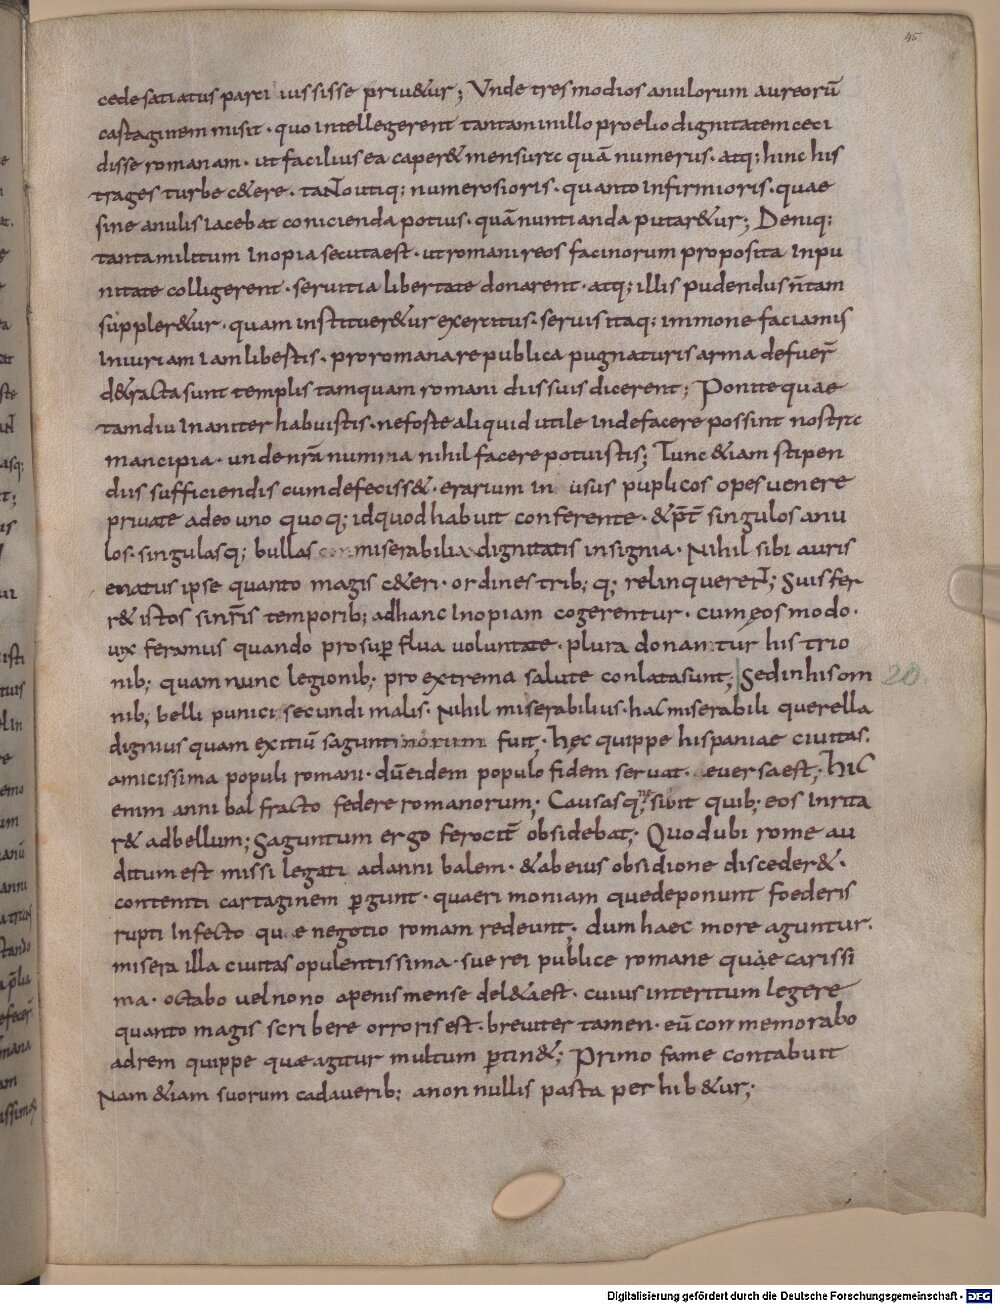 45
cede satiatus parci iussisse priu&ur; Unde tres modios anulorum aureorū
castaginem misit · quo intellegerent tantam in illo proelio dignitatem ceci
disse romanam · ut facilius ea caper& mensura quā numerus · atq; hinc his
trages turbe c&ere · taNto utiq; numerosioris · quanto infirmioris · quae
sine anulis iacebat conicienda potius · quā nuntianda putar&ur; Deniq;
tanta militum inopia secuta est · ut romani reos facinorum proposita inpu
nitate colligerent · seruitia libertate donarent · atq; illis pudendus ñ tam
suppler&ur · quam institu&ur exercitus · seruis itaq; immo ne faciamus
iniuriam iam libertis · pro romana re publica pugnaturis arma defuer̄
d&racta sunt templis tamquam romani diis suis dicerent; Ponite quae
tamdiu inaniter habuistis · ne foste aliquid utile inde facere possint nostra
mancipia · unde nr̄a numina nihil facere potuistis; Tunc &iam stipen
diis sufficiendis cum defeciss& · erarium in usus puplicos opes uenere
priuate adeo uno quoq; id quod habuit conferente · & p̄t singulos anu
los · singulasq; bullas miserabilia dignitatis insignia · Nihil sibi auris
enatus ipse quanto magis c&eri · ordines trib; q; relinquereNt; Suis fer
r& istos sinr̄is temporib; ad hanc inopiam cogerentur · cum eos modo ·
uix feramus quando pro sup̄flua uoluntate · plura donantur histrio
nib; quam nunc legionib; pro extrema salute conlata sunt; Sed in his om 20.
nib; belli punici secundi malis · Nihil miserabilius · hac miserabili querella
dignius quam exitiū saguntinorum fuit · hęc quippe hispaniae ciuitas ·
amicissima populi romani · dū eidem populo fidem seruat · euersa est; Hic
enim annibal fracto federe romanorum; Causas q;siuit quib; eos inrita
r& ad bellum; Saguntum ergo ferocit̄ obsidebat; Quod ubi rome au
ditum est missi legati ad annibalem · & ab eius obsidione disceder& ·
contenti cartaginem p̄gunt · quaerimoniam que deponunt foederis
rupti infecto qu e negotio romam redeunt; dum haec more aguntur ·
misera illa ciuitas opulentissima · sue rei publice romane quae carissi
ma · octabo uel nono a penis mense del&a est · cuius interitum legere
quanto magis scribere orroris est · breuiter tamen · eū conmemorabo
ad rem quippe quae agitur multum p̄tin&; Primo fame contabuit
Nam &iam suorum cadauerib; a non nullis pasta perhib&ur;
Digitalisierung gefördert durch die Deutsche Forschungsgemeinschaft - DFG